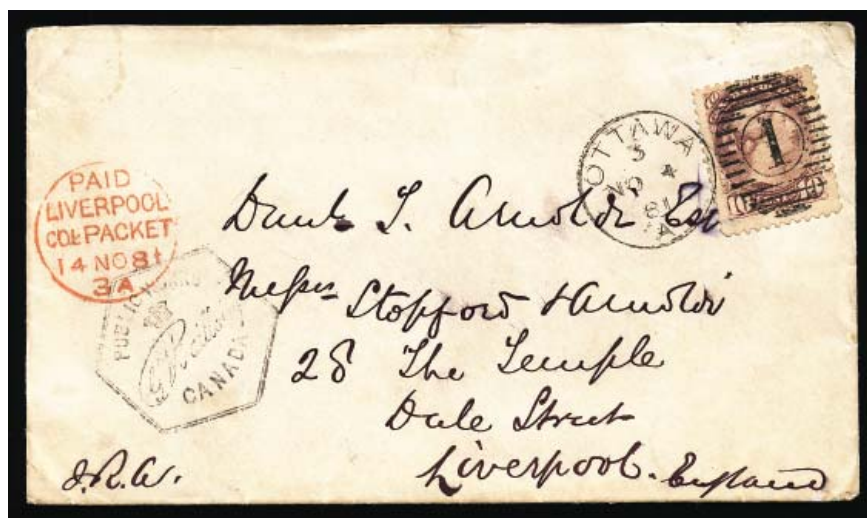 OTTAWA
3
NO 4
81
1
10 10
PAID
LIVERPOOL
COL PACKET
14 NO 81
3A
PUBLIC WORKS
CANADA
Arnoldi Esq
Messrs Stopford & Arnoldi
28 The Temple
Dale Street
Liverpool. England